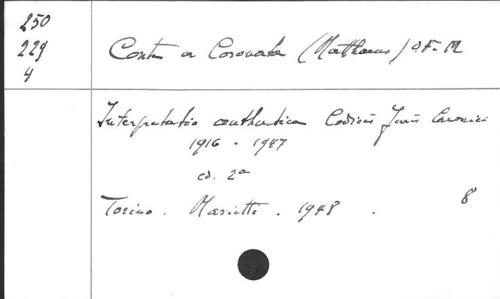 250
229
4
Conte a Coronata (Matthaeus) O.F.M
Interpretatio authentica Codicis Juris Canonici
1916 - 1947
ed. 2a
Torino. Marietti. 1948. 8°